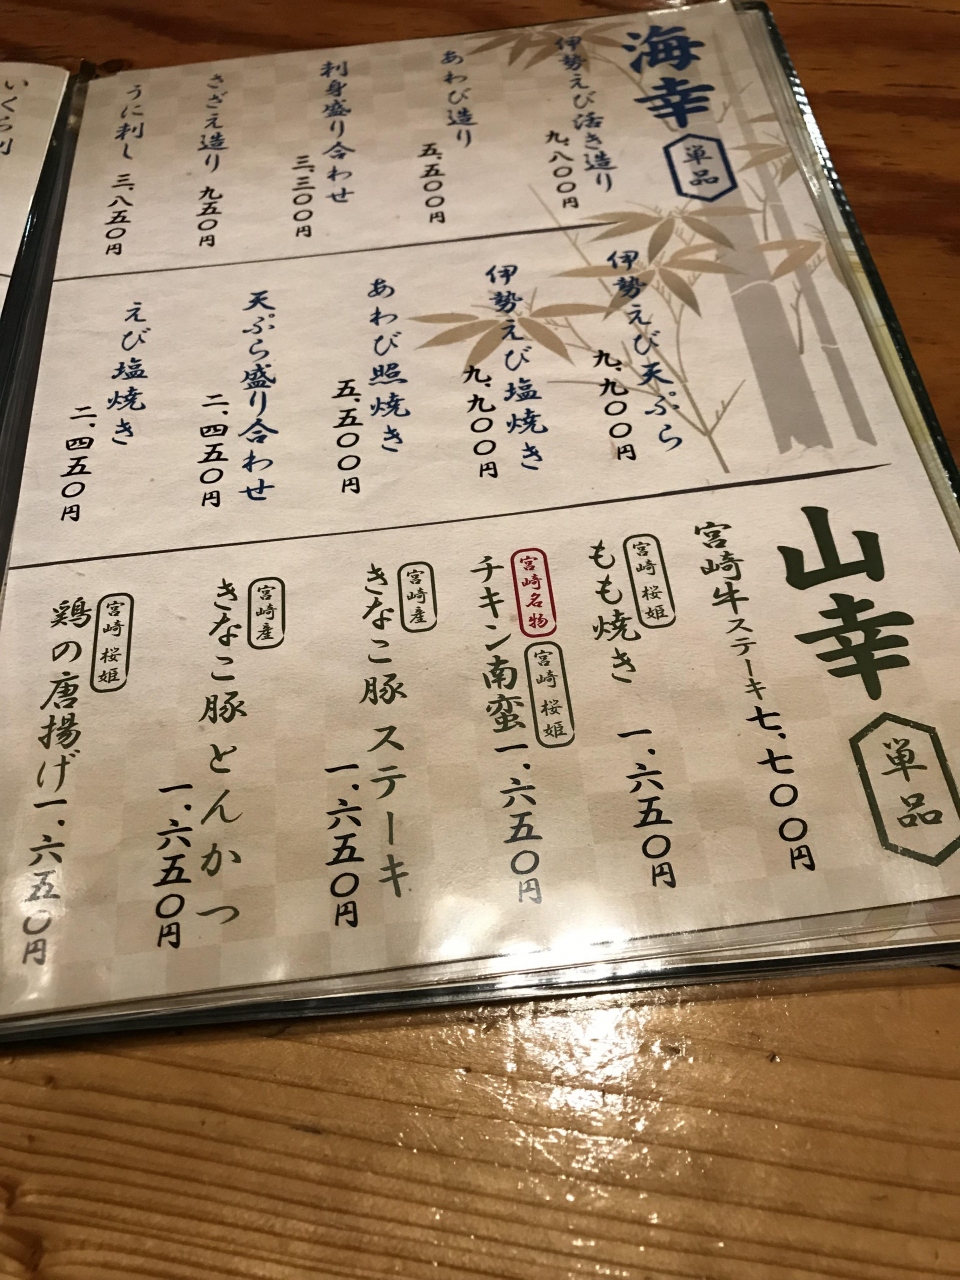 海幸
単品
伊勢えび活き造り
九、八〇〇円
あわび造り
五、五〇〇円
刺身盛り合わせ
三、三〇〇円
さざえ造り 九五〇円
うに刺し 三、八五〇円
伊勢えび天ぷら
九、九〇〇円
伊勢えび塩焼き
九、九〇〇円
あわび照焼き
五、五〇〇円
天ぷら盛り合わせ
二、四五〇円
えび塩焼き
二、四五〇円
山幸
単品
宮崎牛ステーキ七、七〇〇円
宮崎 桜姫
もも焼き 一、六五〇円
宮崎名物
宮崎 桜姫
チキン南蛮一、六五〇円
宮崎産
きなこ豚ステーキ
一、六五〇円
宮崎産
きなこ豚とんかつ
一、六五〇円
宮崎 桜姫
鶏の唐揚げ一、六五〇円
いくら刺